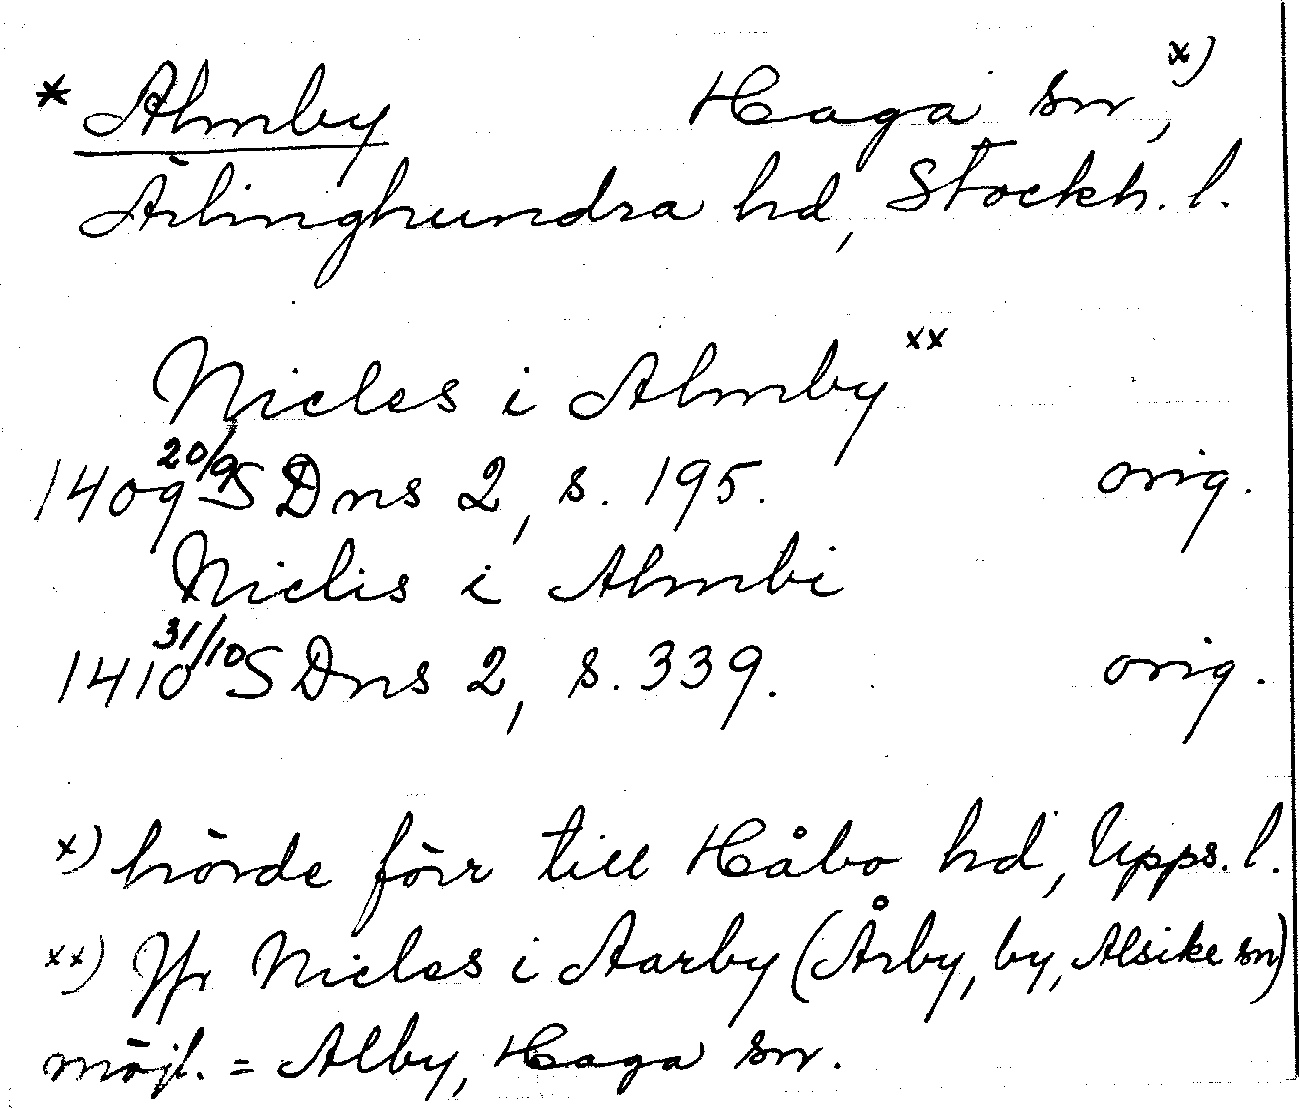 * Almby Haga sn, x)
Ärlinghundra hd, Stockh. l.
Nicles i Almby xx
1409 20/9 SDns 2, s. 195. orig.
Niclis i Almbi
1410 31/10 SDns 2, s. 339. orig.
x) hörde förr till Håbo hd, Upps. l.
xx) Jfr Nicles i Aarby (Årby, by, Alsike sn)
möjl. = Alby, Haga sn.